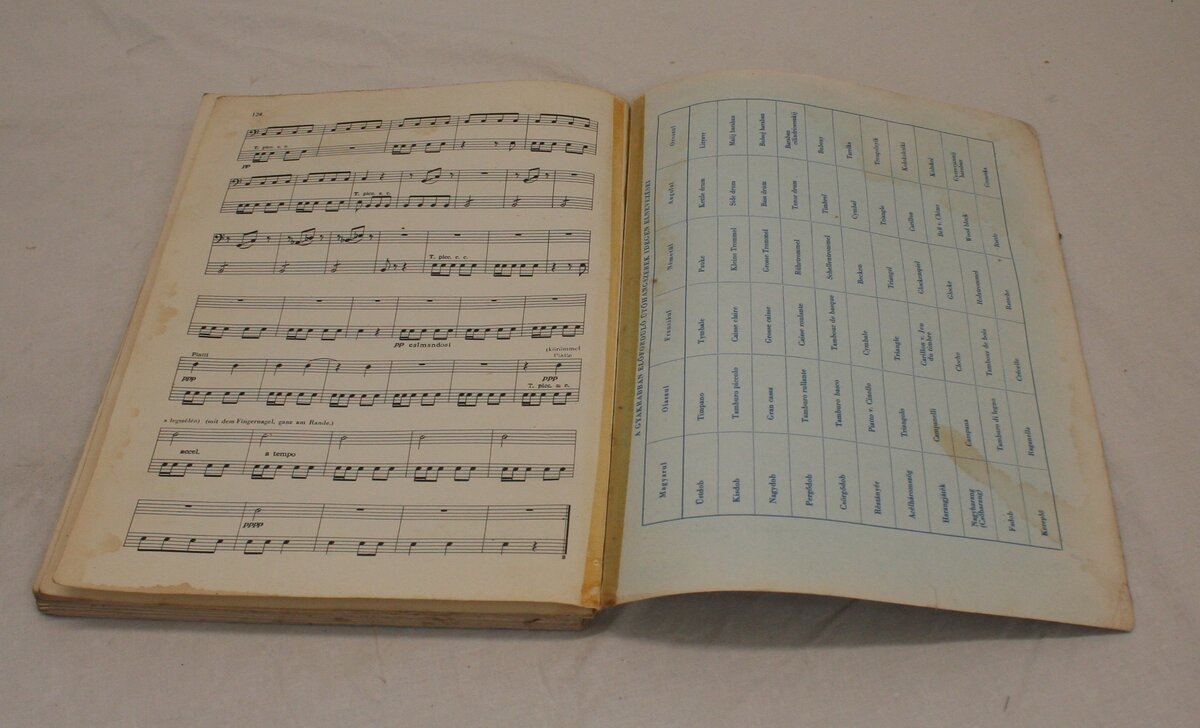 124
T. picc. c. c.
pp
T. picc. s. c.
T. picc. c. c.
pp calmandosi
Piatti
(körömmel
ppp
ppp
T. picc. s. c.
a legszélén) (mit dem Fingernagel, ganz am Rande.)
accel.
a tempo
pppp
A GYAKRABBAN ELŐFORDULÓ ÜTŐHANGSZEREK IDEGEN ELNEVEZÉSEI
Magyarul Olaszul Franciául Németül Angolul Oroszul
Üstdob Timpano Tymbale Pauke Kettle drum Litavr
Kisdob Tamburo piccolo Caisse claire Kleine Trommel Side drum Malij baraban
Nagydob Gran cassa Grosse caisse Grosse Trommel Bass drum
Pergődob Tamburo rullante Caisse roulante Rührtrommel Tenor drum Baraban
Csörgődob Tamburo basco Tambour de basque Schellentrommel Timbrel Buben
Réztányér Piatto v. Cinello Cymbale Becken Cymbal Tarelka
Acélháromszög Triangolo Triangle Triangel Triangle
Harangjáték Campanelli Carillon v. Jeu
du timbre Glockenspiel Carillon Kolokolcsiki
Nagyharang
(Csőharang) Campana Cloche Glocke Bell v. Chime Kolokol
Fadob Tamburo di legno Tambour de bois Holztrommel Wood block
Kereplő Raganella Crécelle Ratsche